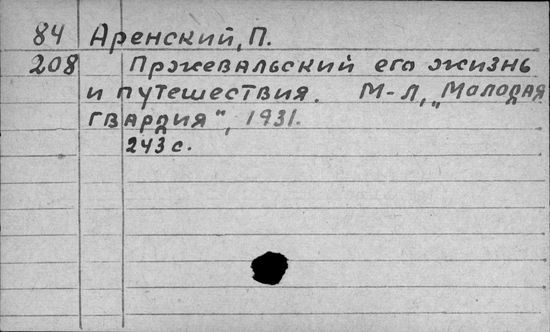 84 Аренский, П.
208 Пржевальский его жизнь
и путешествия. М-Л, „Молодая
гвардия", 1931.
243 с.